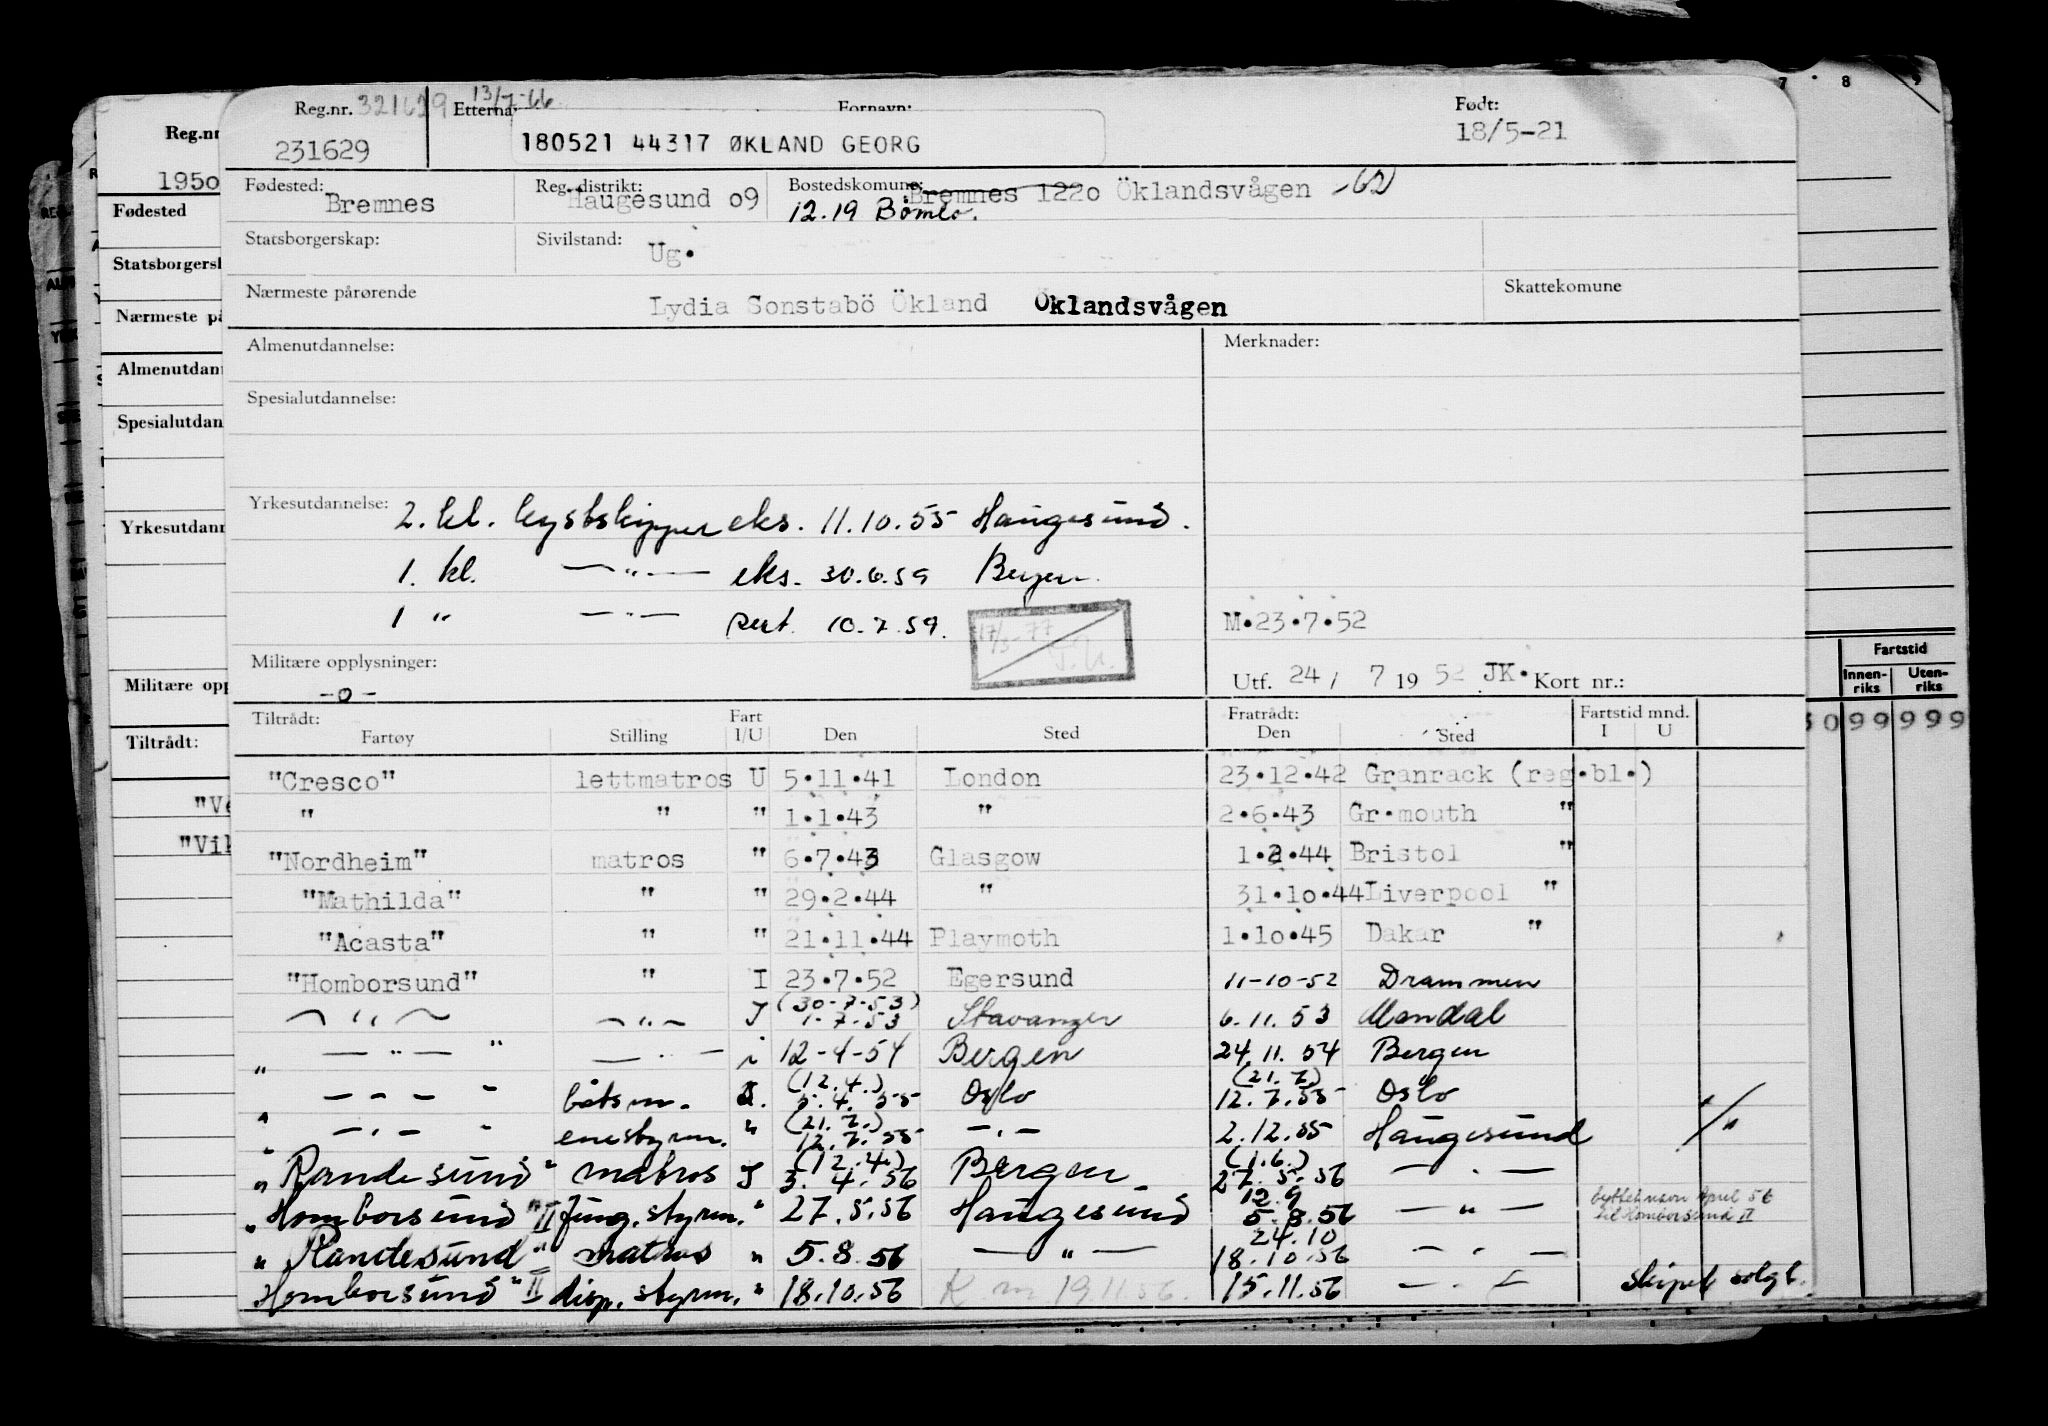 Reg.nr. 321629 13/7-66 Etterna Fornavn: Født:
231629 180521 44317 ØKLAND GEORG 18/5-21
Fødested: Bremnes Reg. distrikt: Haugesund o9 Bostedskomune: Bremnes 122o Öklandsvågen -62
12.19 Bömlo.
Statsborgerskap: Sivilstand: Ug.
Nærmeste pårørende Lydia Sonstabö Ökland Öklandsvågen Skattekomune
Almenutdannelse: Merknader:
Spesialutdannelse:
Yrkesutdannelse: 2. kl. kystskipper eks. 11.10.55 Haugesund.
1. kl. —"— eks. 30.6.59 Bergen
1 " —"— sert. 10.7.59. M.23.7.52
17/3-77
Militære opplysninger: -o- Utf. 24/ 7 19 52 JK. Kort nr.:
Tiltrådt: Fart Fratrådt: Fartstid mnd.
Fartøy Stilling I/U Den Sted Den Sted I U
"Cresco" lettmatros U 5.11.41 London 23.12.42 Granrack (reg.bl.)
" " " 1.1.43 " 2.6.43 Gr.mouth "
"Nordheim" matros " 6.7.43 Glasgow 1.2.44 Bristol "
"Mathilda" " " 29.2.44 " 31.1o.44 Liverpool "
"Acasta" " " 21.11.44 Playmoth 1.1o.45 Dakar "
"Homborsund" " I 23.7.52 Egersund 11-10-52 Drammen
—"— —"— I (30-7-53) 1-7-53 Stavanger 6.11.53 Mandal
" —"— " —"— i 12-4-54 Bergen 24.11.54 Bergen
" —"— " båtsm. I. (12.4.) 5.4.55 Oslo (21.7.) 12.7.55 Oslo
" —"— " enestyrm. " (21.7.) 12.7.55 —"— 2.12.55 Haugesund "/"
"Randesund" matros I (12.4.) 3.4.56 Bergen (1.6.) 27.5.56 —"—
"Homborsund" II fung. styrm. " 27.5.56 Haugesund 12.9 5.8.56 —"— byttet navn April 56 til Homborsund II
"Randesund" matros " 5.8.56 —"— 24.10 18.10.56 —"—
"Homborsund" II disp. styrm. " 18.10.56 K m 19.11.56. 15.11.56 —"— Skipet solgt.
Reg.nr
195o
Fødested
Statsborgersk
Nærmeste på
Almenutdan
Spesialutdan
Yrkesutdann
Militære opp
Tiltrådt:
"Ve
"Vik
7 8 9
Fartstid
Innen-riks Uten-riks
30 99 999